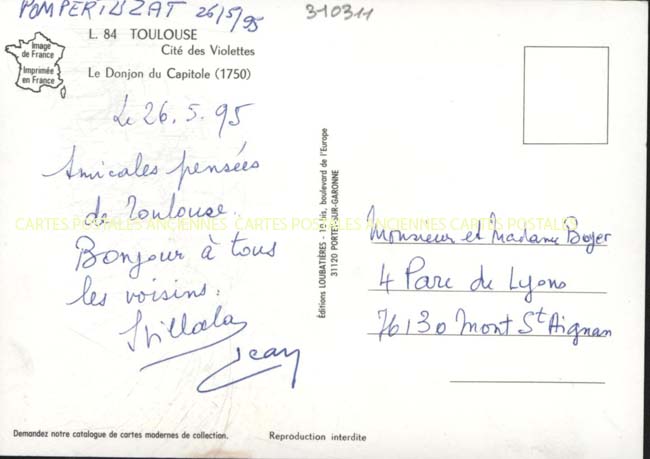 POMPERTUZAT 26/5/95
310311
Image
de France
Imprimée
en France
L. 84 TOULOUSE
Cité des Violettes
Le Donjon du Capitole (1750)
Le 26.5.95
Amicales pensées
de Toulouse.
Bonjour à tous
les voisins.
Jean
Editions LOUBATIÈRES - 10 bis, boulevard de l'Europe
31120 PORTET-SUR-GARONNE
Monsieur et Madame Boyer
4 Parc de Lyons
76130 Mont St Aignan
CARTES POSTALES ANCIENNES CARTES POSTALES ANCIENNES CARTES POSTALES
Demandez notre catalogue de cartes modernes de collection.
Reproduction interdite